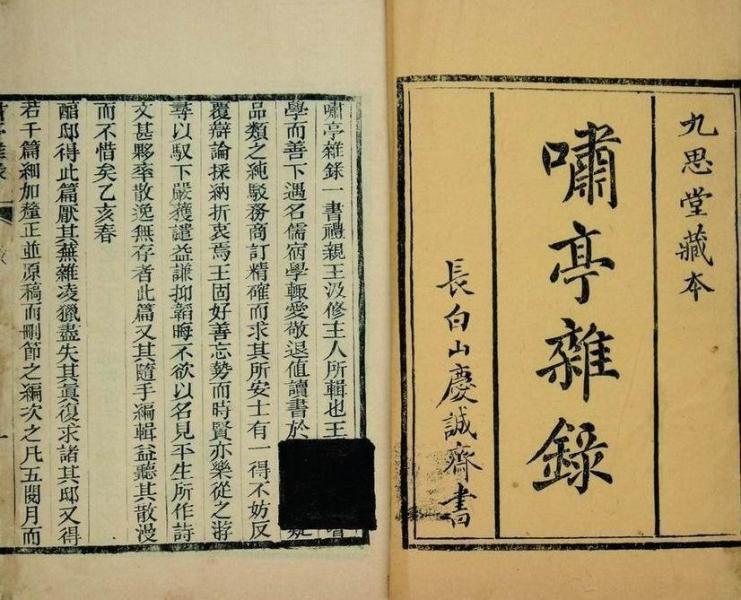 九思堂藏本
嘯亭雜錄
長白山慶誠齋書
嘯亭雜錄一書禮親王汲修主人所輯也王
學而善下遇名儒宿學輒愛敬退值讀書於
品類之純駁務商訂精確而求其所安士有一得不妨反
覆辯論採納折衷焉王固好善忘勢而時賢亦樂從之游
尋以馭下嚴獲譴益謙抑韜晦不欲以名見平生所作詩
文甚夥率散逸無存者此篇又其隨手編輯益聽其散漫
而不惜矣乙亥春
醅邸得此篇厭其蕪雜凌獵盡失其真復求諸其邸又得
若干篇細加釐正並原稿而刪節之編次之凡五閱月而